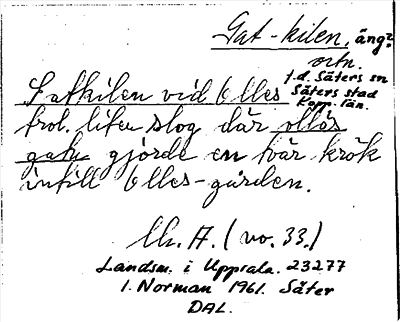 Gat-kilen, äng?
ortn.
f.d. Säters sn
Säters stad
Kopp. län.
Gatkilen vid Olles
trol. liten slog där ollås
gatu gjorde en tvär krök
intill Olles-gården.
(vo. 33.)
Landsm. i Uppsala. 23277
I. Norman 1961. Säter
DAL.